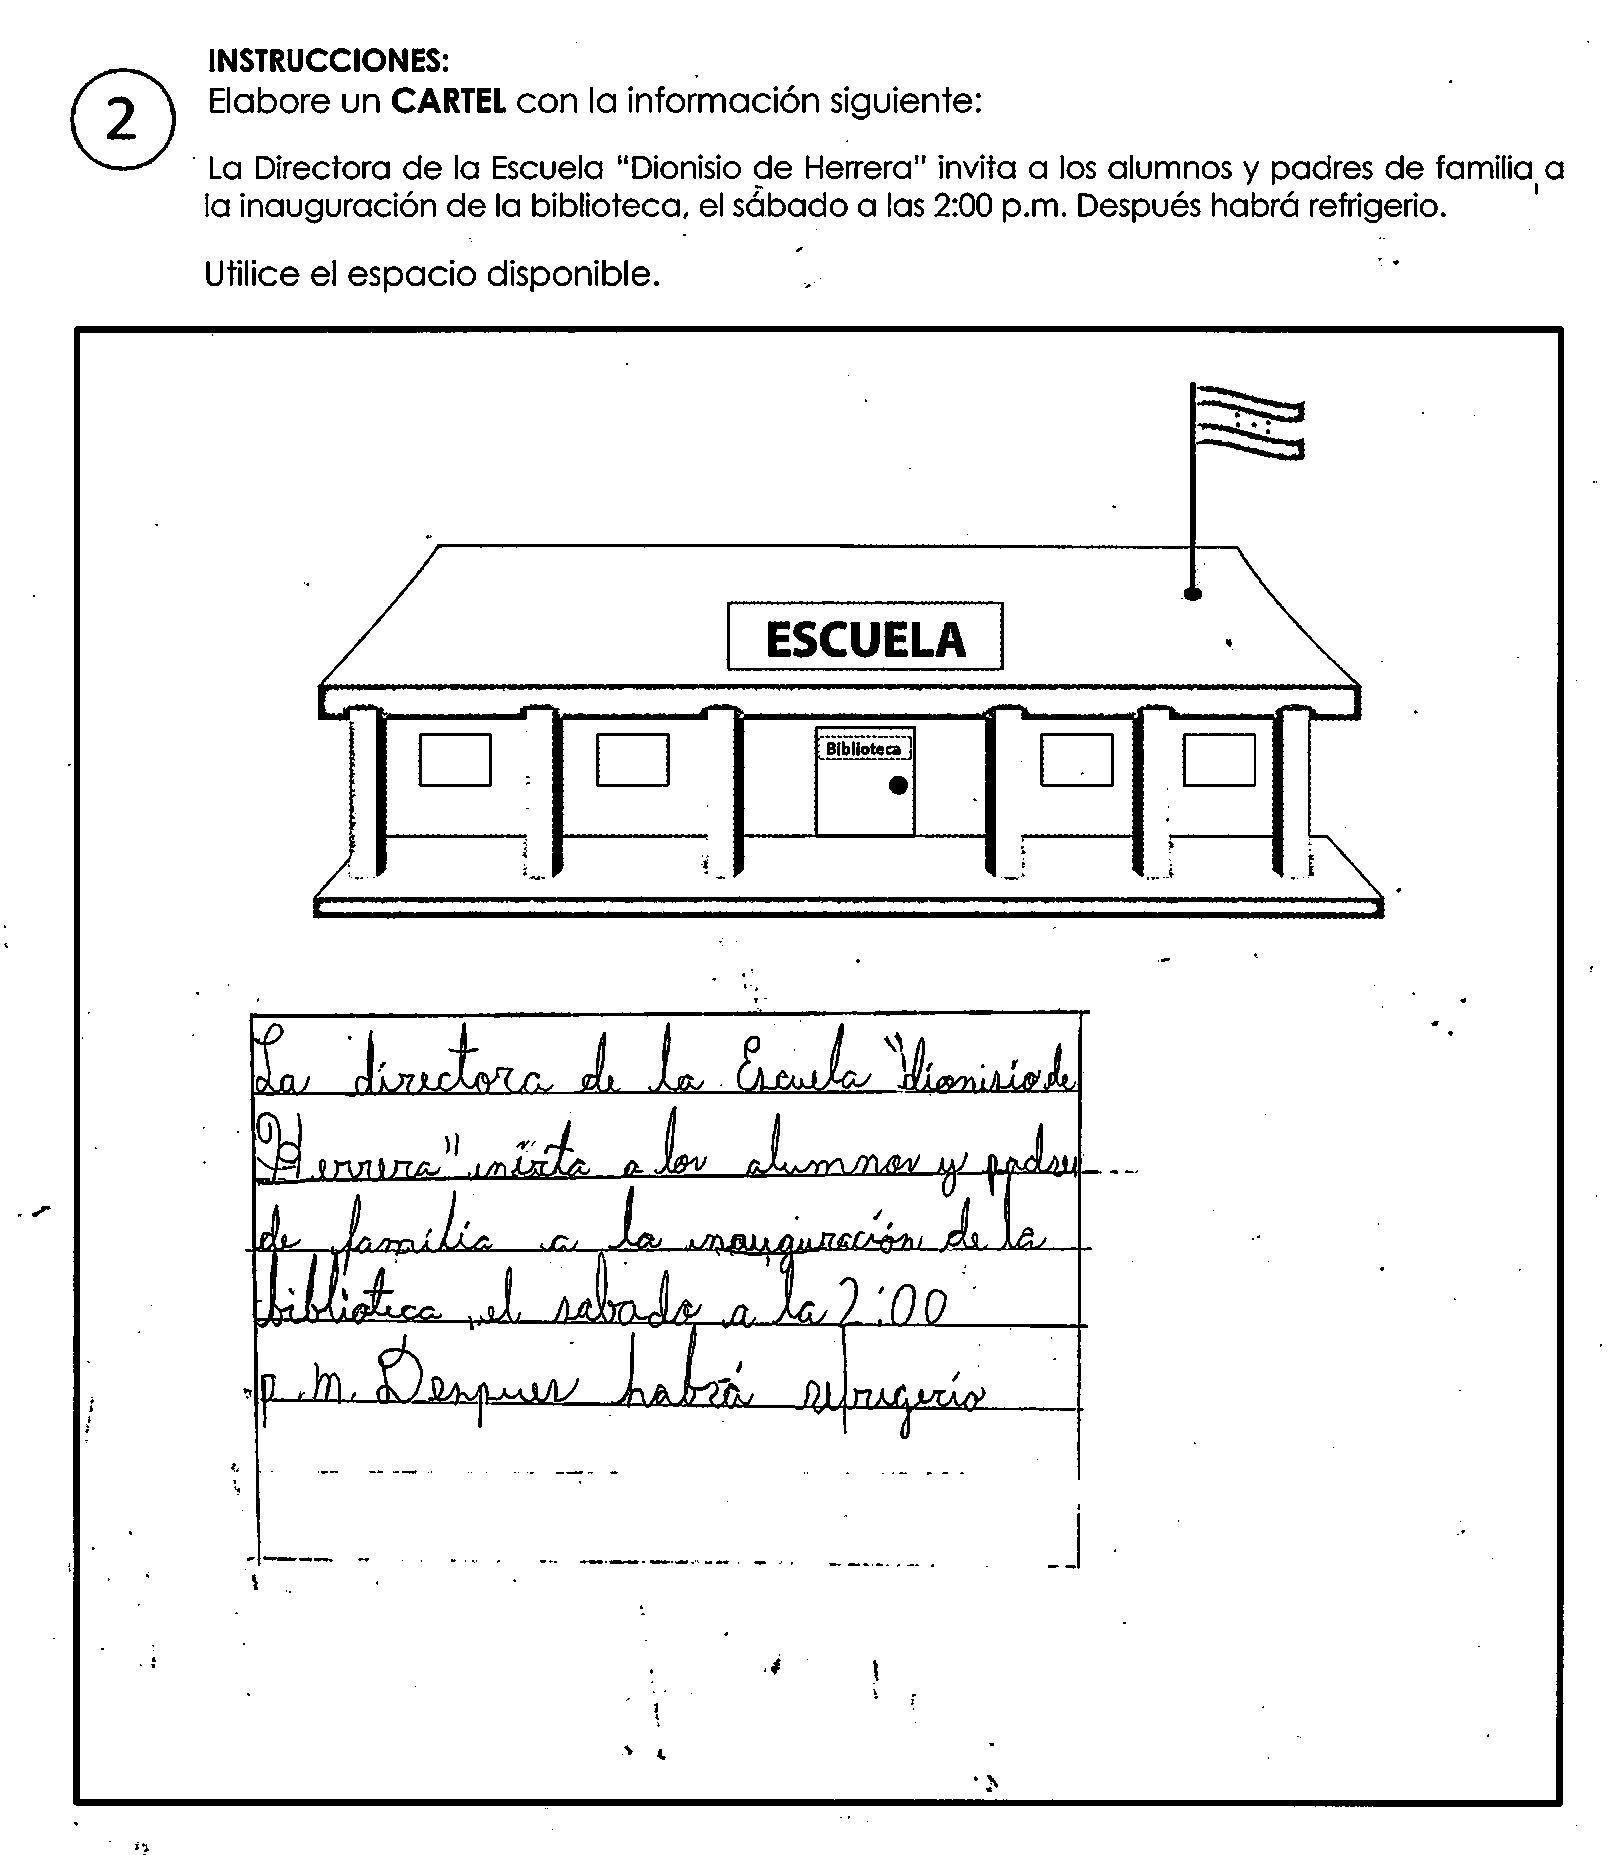 INSTRUCCIONES:
2
Elabore un CARTEL con la información siguiente:
La Directora de la Escuela "Dionisio de Herrera" invita a los alumnos y padres de familia a
la inauguración de la biblioteca, el sábado a las 2:00 p.m. Después habrá refrigerio.
Utilice el espacio disponible.
ESCUELA
Biblioteca
La directora de la Escuela "dionisio de
Herrera" a los alumnos y padres
de familia a la inauguración de la
biblioteca, el sabado a la 2:00
p.m. Despues habrá refrigerio